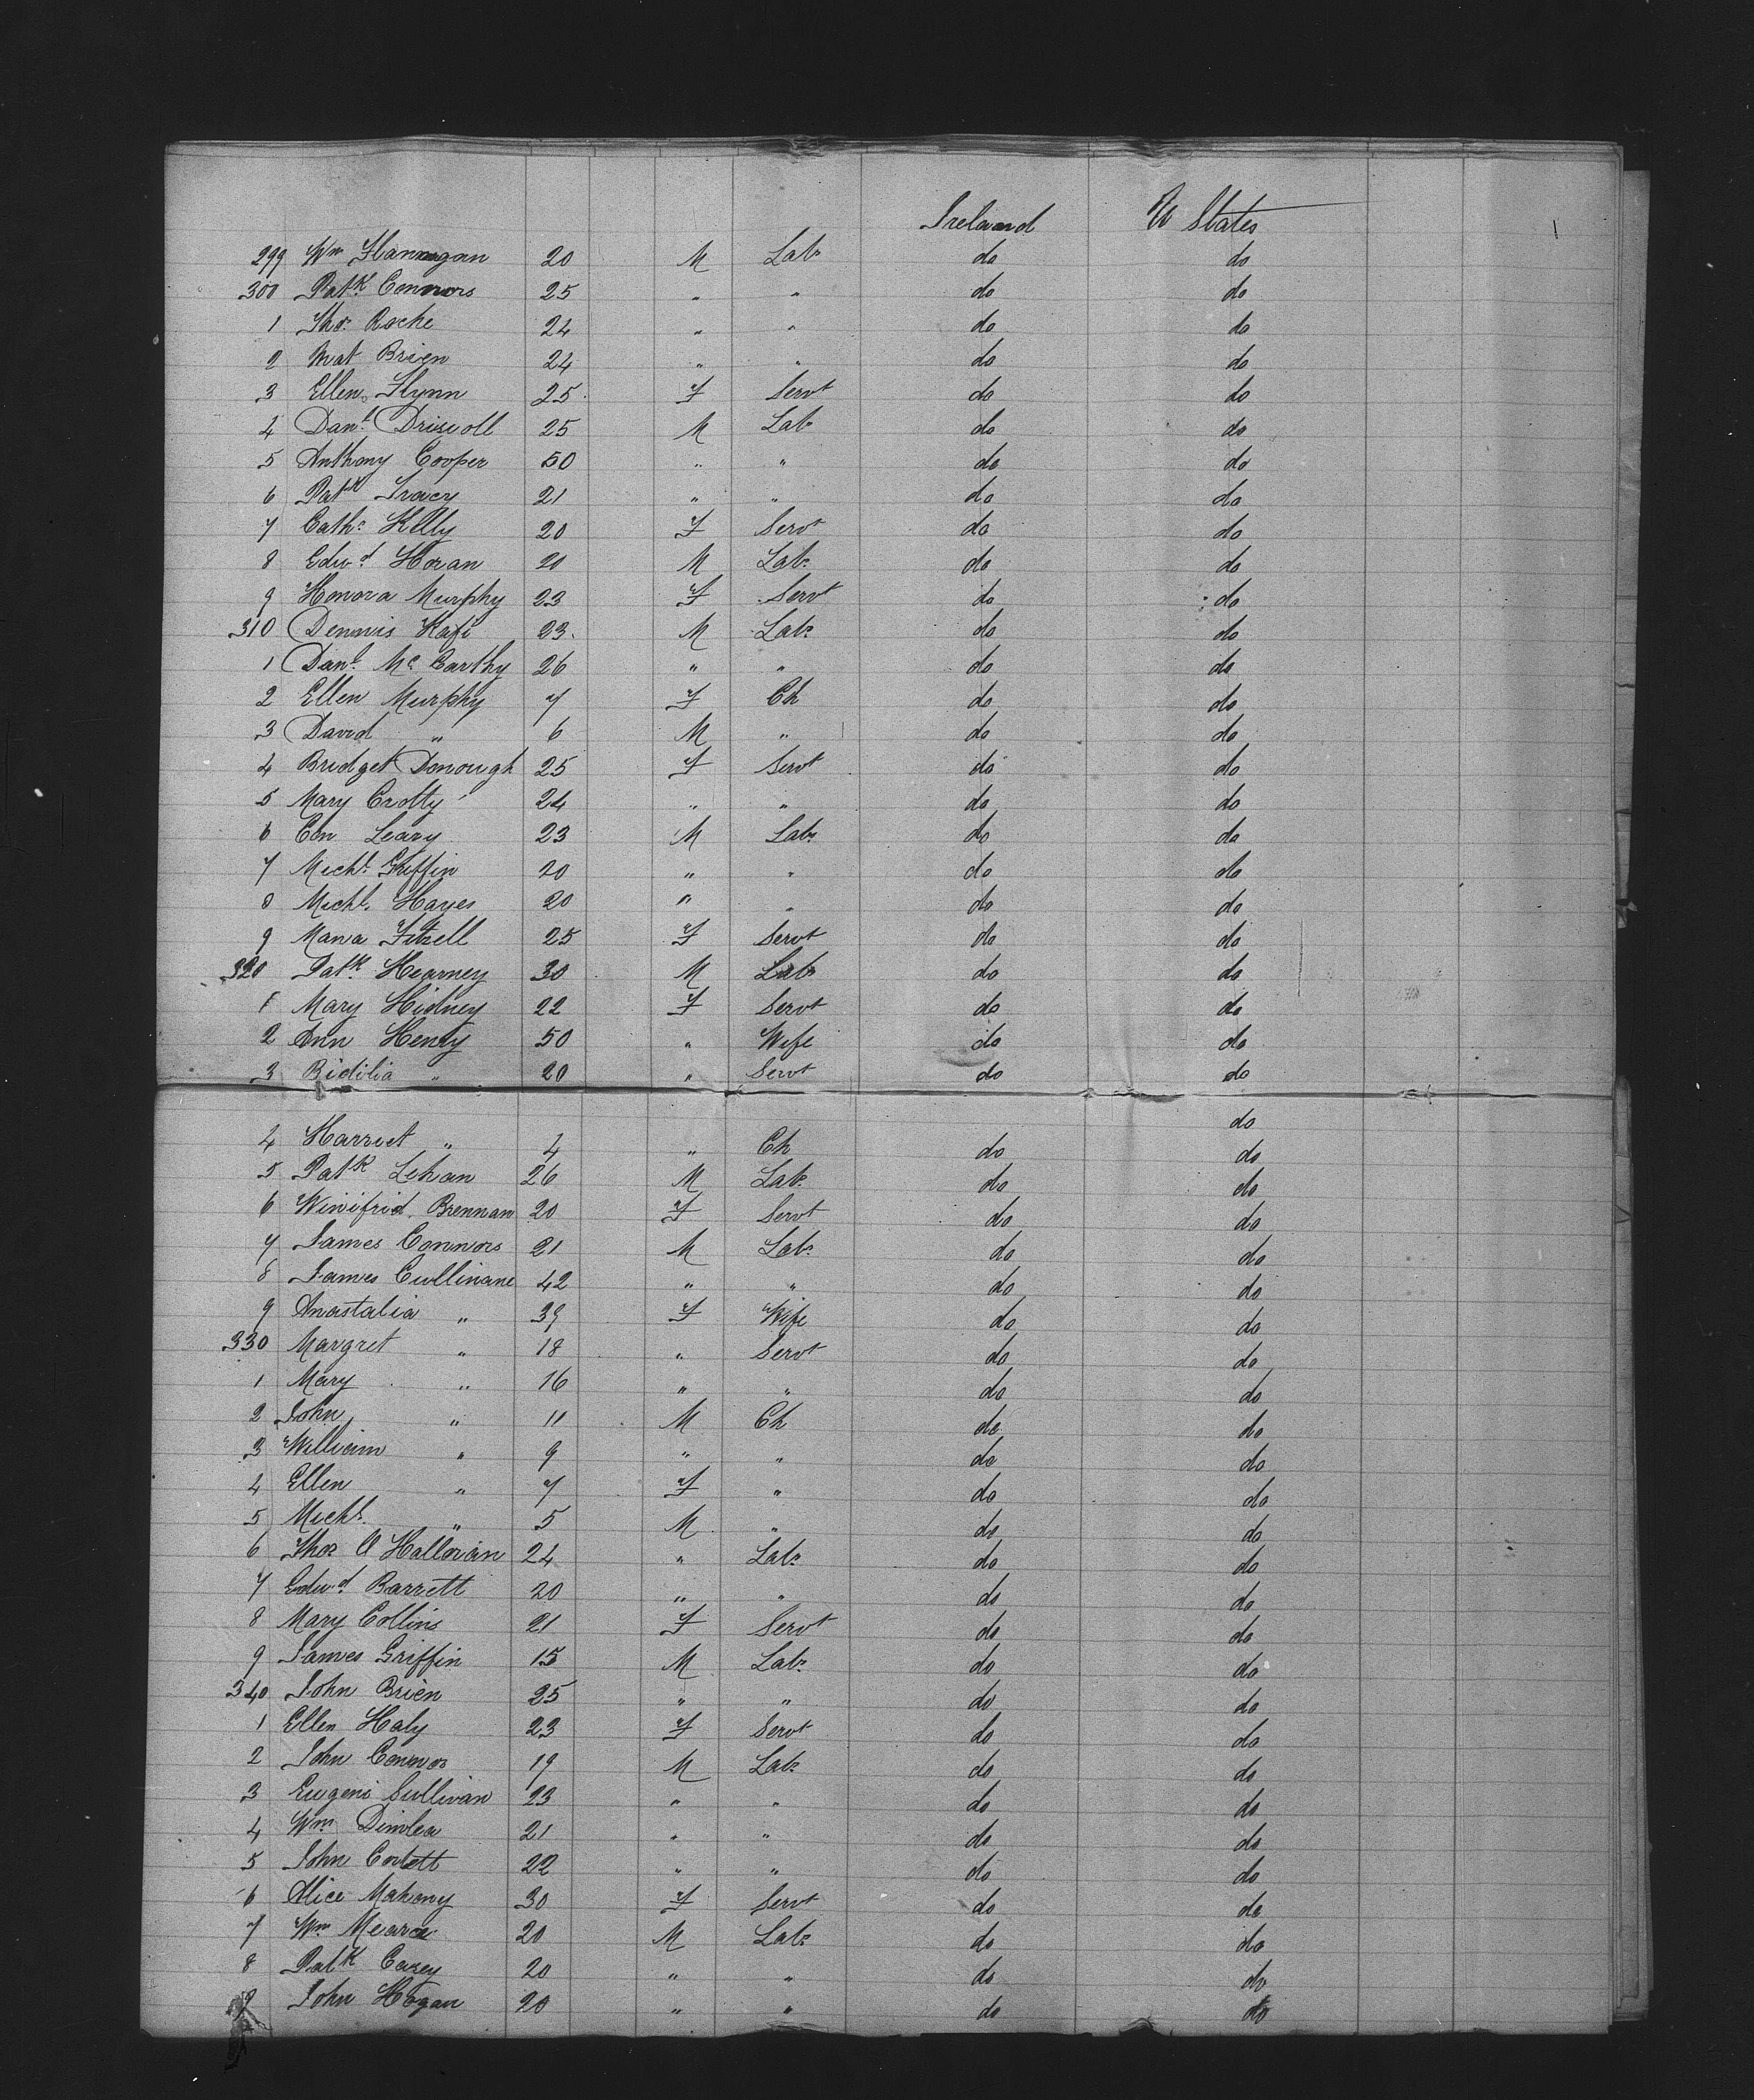 Ireland U States
299 Wm Flannagan 20 M Labr do do
300 Patk Connors 25 " " do do
1 Thos Roche 24 " " do do
2 Mat Brien 24 " " do do
3 Ellen Flynn 25 F Servt do do
4 Danl Driscoll 25 M Labr do do
5 Anthony Cooper 50 " " do do
6 Patk Tracy 21 " " do do
7 Cathe Kelly 20 F Servt do do
8 Edwd Horan 20 M Labr do do
9 Honora Murphy 23 F Servt do do
310 Dennis Kafe 23 M Labr do do
1 Danl McCarthy 26 " " do do
2 Ellen Murphy 7 F Ch do do
3 David " 6 M " do do
4 Bridget Donough 25 F Servt do do
5 Mary Crotty 24 " " do do
6 Con Leary 23 M Labr do do
7 Michl Griffin 20 " " do do
8 Michl Hayes 20 " " do do
9 Maria Fitzell 25 F Servt do do
320 Patk Hearney 30 M Labr do do
1 Mary Hidney 22 F Servt do do
2 Ann Henry 50 " Wife do do
3 Bidilia " 20 " Servt do do
do
4 Harriet " 4 " Ch do do
5 Patk Lehan 26 M Labr do do
6 Winifrid Brennan 20 F Servt do do
7 James Connors 21 M Labr do do
8 James Cullinane 42 " " do do
9 Anastatia " 39 F Wife do do
330 Margret " 18 " Servt do do
1 Mary " 16 " " do do
2 John " 11 M Ch do do
3 William " 9 " " do do
4 Ellen " 7 F " do do
5 Michl " 5 M " do do
6 Thos O Halloran 24 " Labr do do
7 Edwd Barrett 20 " " do do
8 Mary Collins 21 F Servt do do
9 James Griffin 15 M Labr do do
340 John Brien 25 " " do do
1 Ellen Haly 23 F Servt do do
2 John Connor 19 M Labr do do
3 Eugene Sullivan 23 " " do do
4 Wm 21 " " do do
5 John Corbett 22 " " do do
6 Alice Mahony 30 F Servt do do
7 Wm Meara 20 M Labr do do
8 Patk Casey 20 " " do do
9 John Hogan 20 " " do do